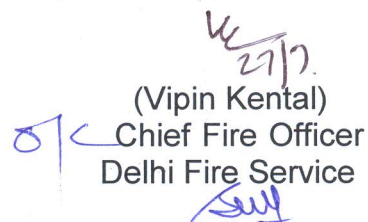 27/7.
(Vipin Kental)
o/c Chief Fire Officer
Delhi Fire Service